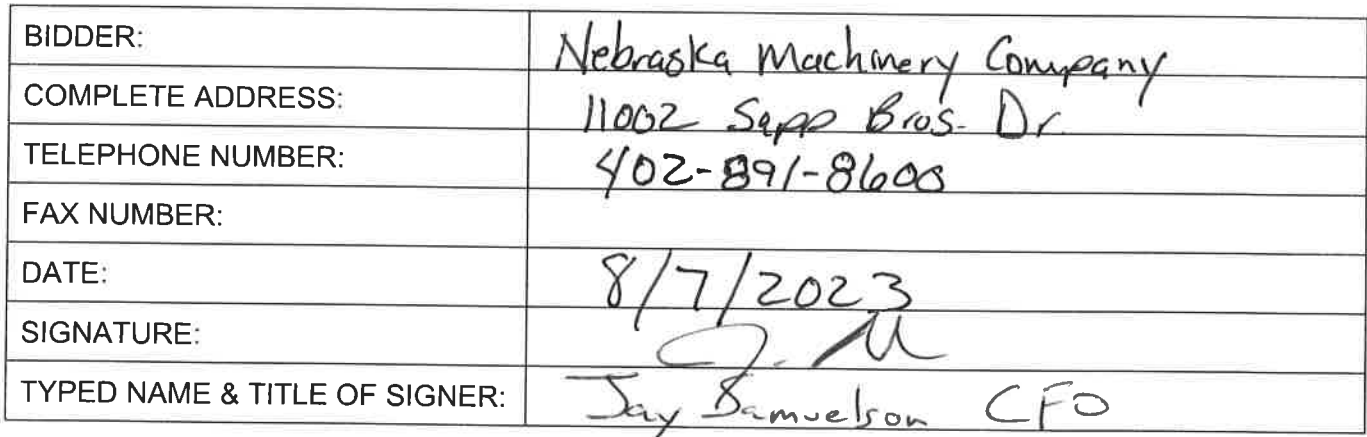 BIDDER: Nebraska Machinery Company
COMPLETE ADDRESS: 11002 Sapp Bros. Dr.
TELEPHONE NUMBER: 402-891-8600
FAX NUMBER:
DATE: 8/7/2023
SIGNATURE:
TYPED NAME & TITLE OF SIGNER: Jay Samuelson CFO